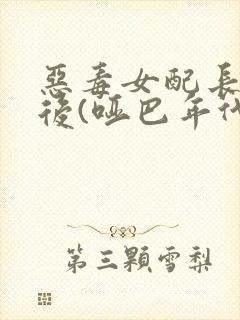 惡毒女配長
後(啞巴年代
第三顆雪梨